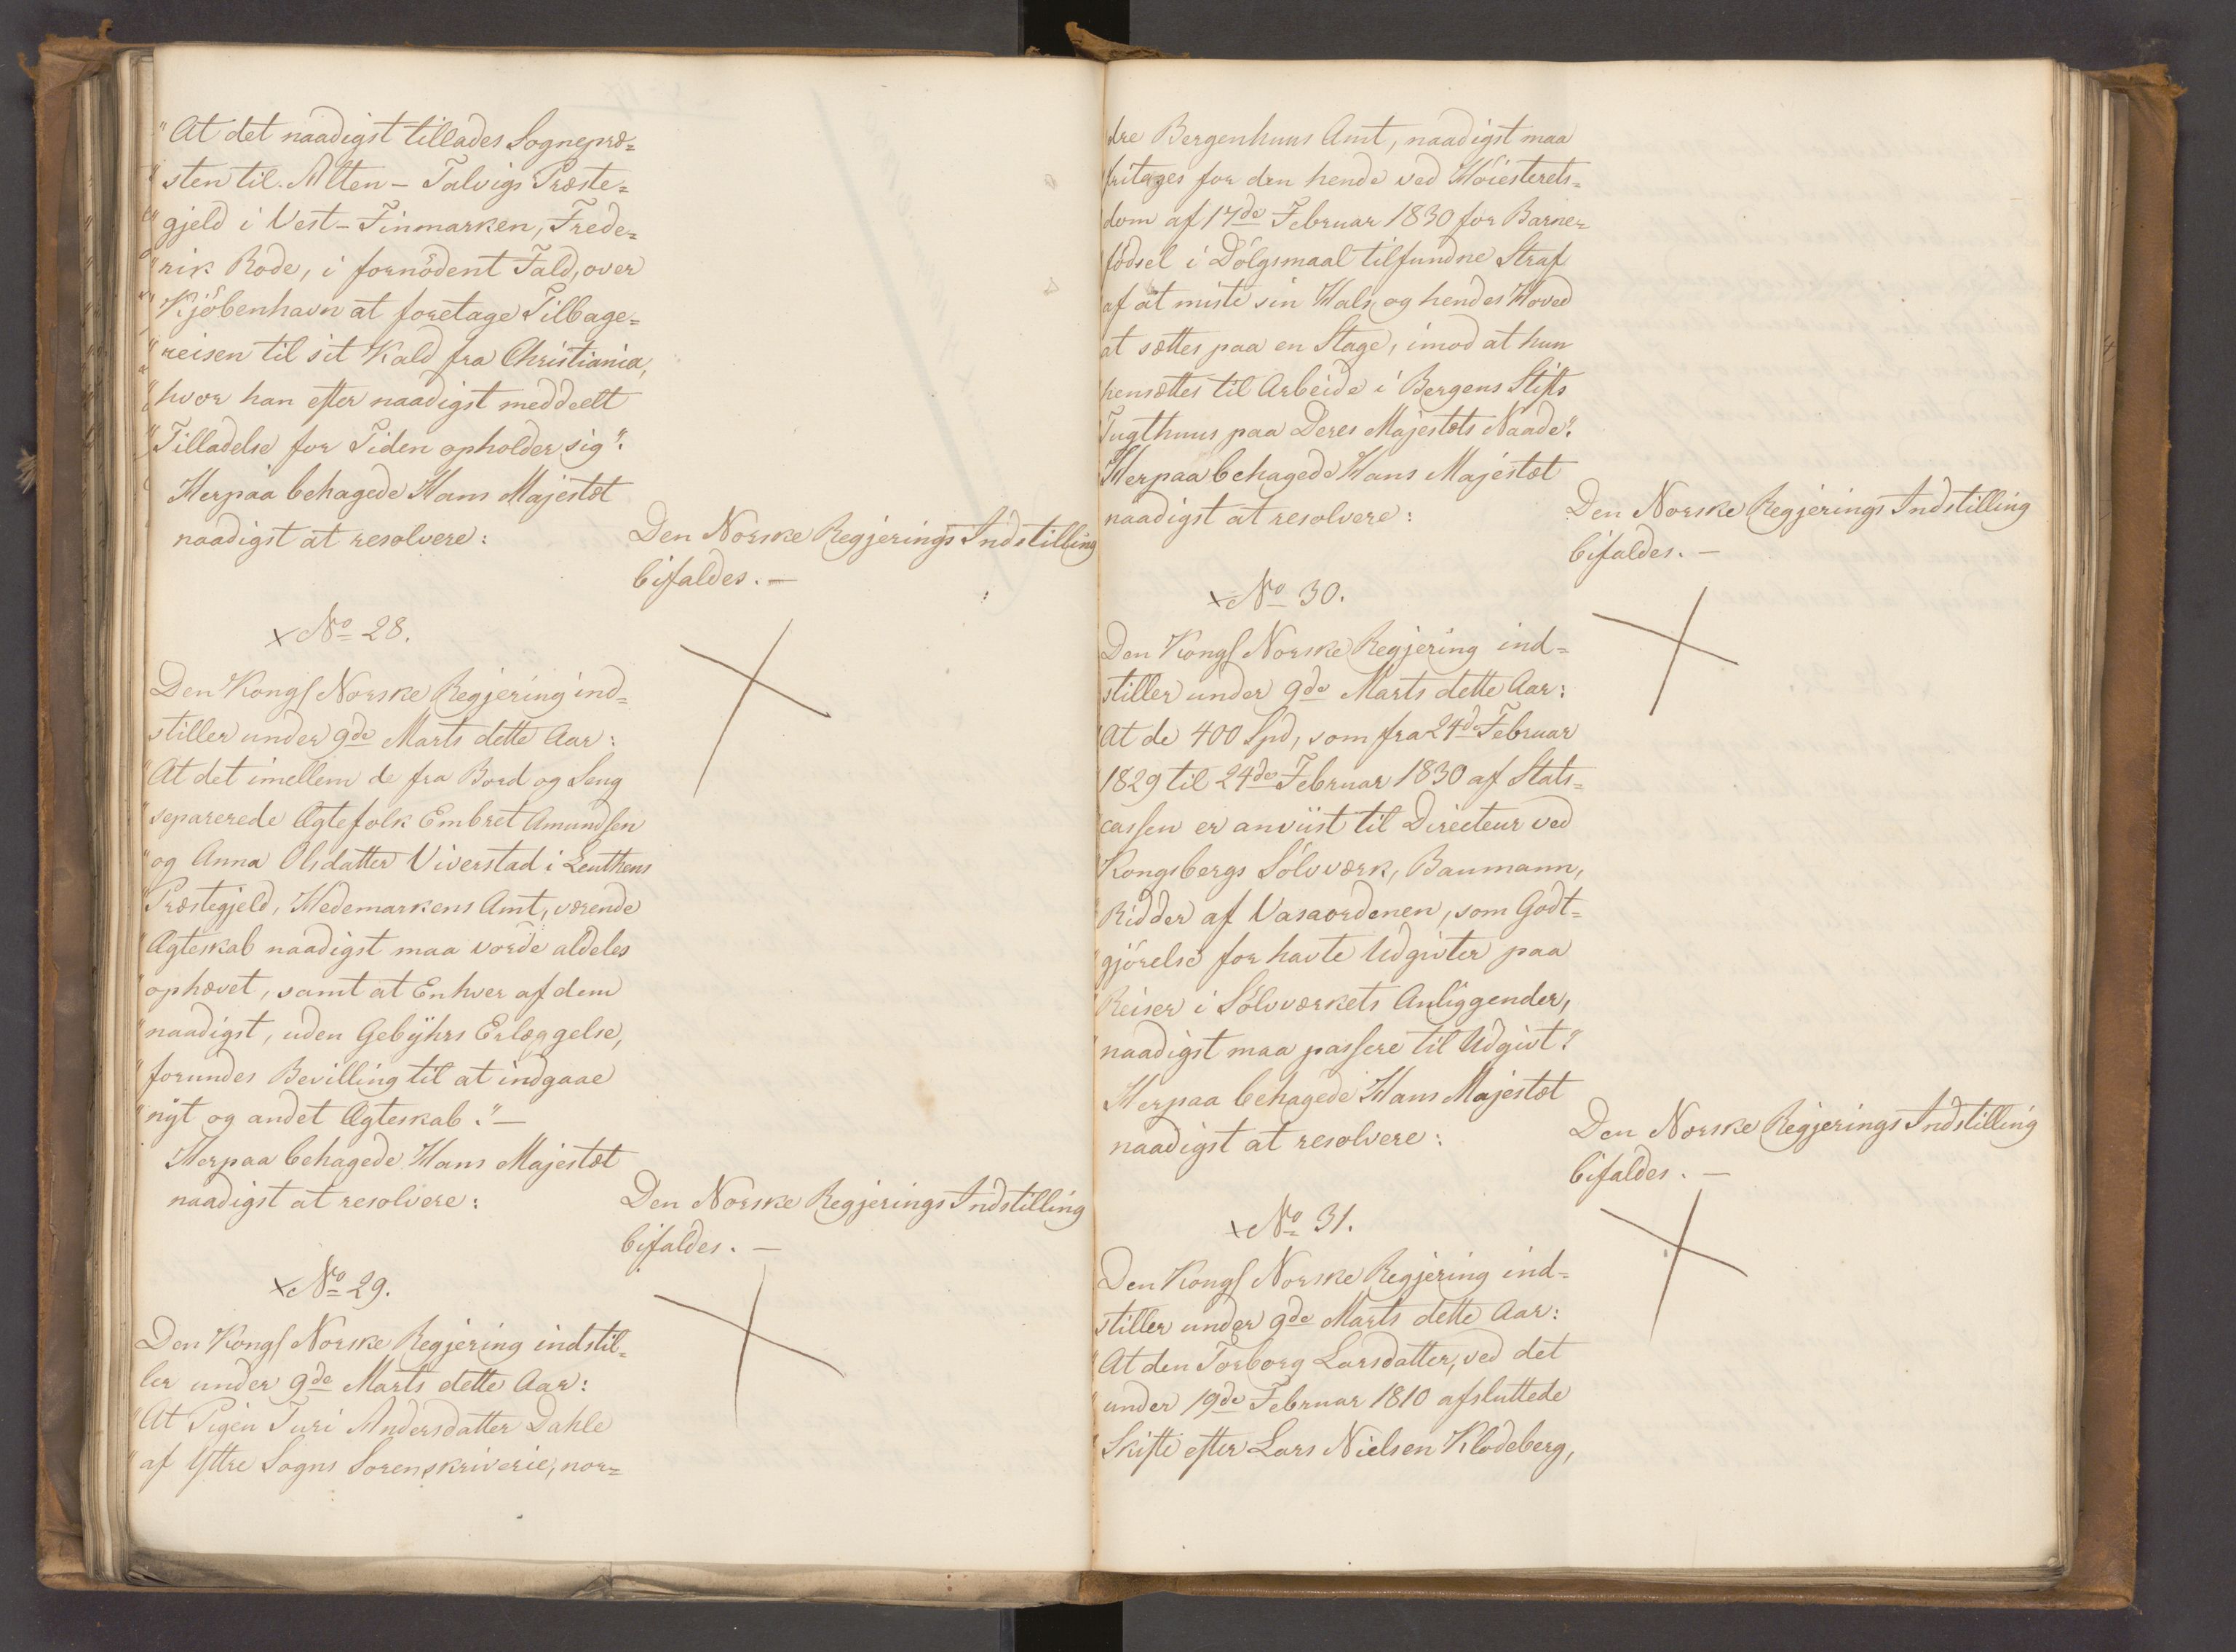 "At det naadigst tillades Sognepræ=
"sten til Alten-Talvigs Præste=
"gjeld i Vest-Finmarken, Frede=
"rik Rode, i fornödent Fald, over
"Kjöbenhavn at foretage Tilbage=
"reisen til sit Kald fra Christiania,
"hvor han efter naadigst meddeelt
"Tilladelse for Tiden opholder sig".
Herpaa behagede Hans Majestæt
naadigst at resolvere:
Den Norske Regjerings Indstilling
bifaldes. —
× No 28.
Den Kongl Norske Regjering ind=
stiller under 9de Marts dette Aar:
"At det imellem de fra Bord og Seng
"separerede Ægtefolk Embret Amundsen
"og Anna Olsdatter Viverstad i Leuthens
"Præstegjeld, Hedemarkens Amt, værende
"Ægteskab naadigst maa vorde aldeles
"ophævet, samt at Enhver af dem
"naadigst, uden Gebyhrs Erlæggelse,
"forundes Bevilling til at indgaae
"nyt og andet Ægteskab." —
Herpaa behagede Hans Majestæt
naadigst at resolvere:
Den Norske Regjerings Indstilling
bifaldes. —
× No 29.
Den Kongl Norske Regjering indstil=
ler under 9de Marts dette Aar:
"At Pigen Turi Andersdatter Dahle
"af Yttre Sogns Sorenskriverie, nor=
dre Bergenhuus Amt, naadigst maa
"fritages for den hende ved Höiesterets=
"dom af 17de Februar 1830 for Barne=
"födsel i Dölgsmaal tilfundne Straf
"af at miste sin Hals, og hendes Hoved
"at sættes paa en Stage, imod at hun
"hensættes til Arbeide i Bergens Stifts
"Tugthuus paa Deres Majestæts Naade".
Herpaa behagede Hans Majestæt
naadigst at resolvere:
Den Norske Regjerings Indstilling
bifaldes. —
× No 30.
Den Kongl Norske Regjering ind=
stiller under 9de Marts dette Aar:
"At de 400 Spd, som fra 24de Februar
"1829 til 24de Februar 1830 af Stats=
"cassen er anviist til Directeur ved
"Kongsbergs Sölvværk, Baumann,
"Ridder af Vasaordenen, som Godt=
"gjörelse for havte Udgivter paa
"Reiser i Sölvværkets Anliggender,
"naadigst maa passere til Udgivt."
Herpaa behagede Hans Majestæt
naadigst at resolvere:
Den Norske Regjerings Indstilling
bifaldes. —
× No 31.
Den Kongl Norske Regjering ind=
stiller under 9de Marts dette Aar:
"At den Torborg Larsdatter, ved det
"under 19de Februar 1810 afsluttede
"Skifte efter Lars Nielsen Klodeberg,